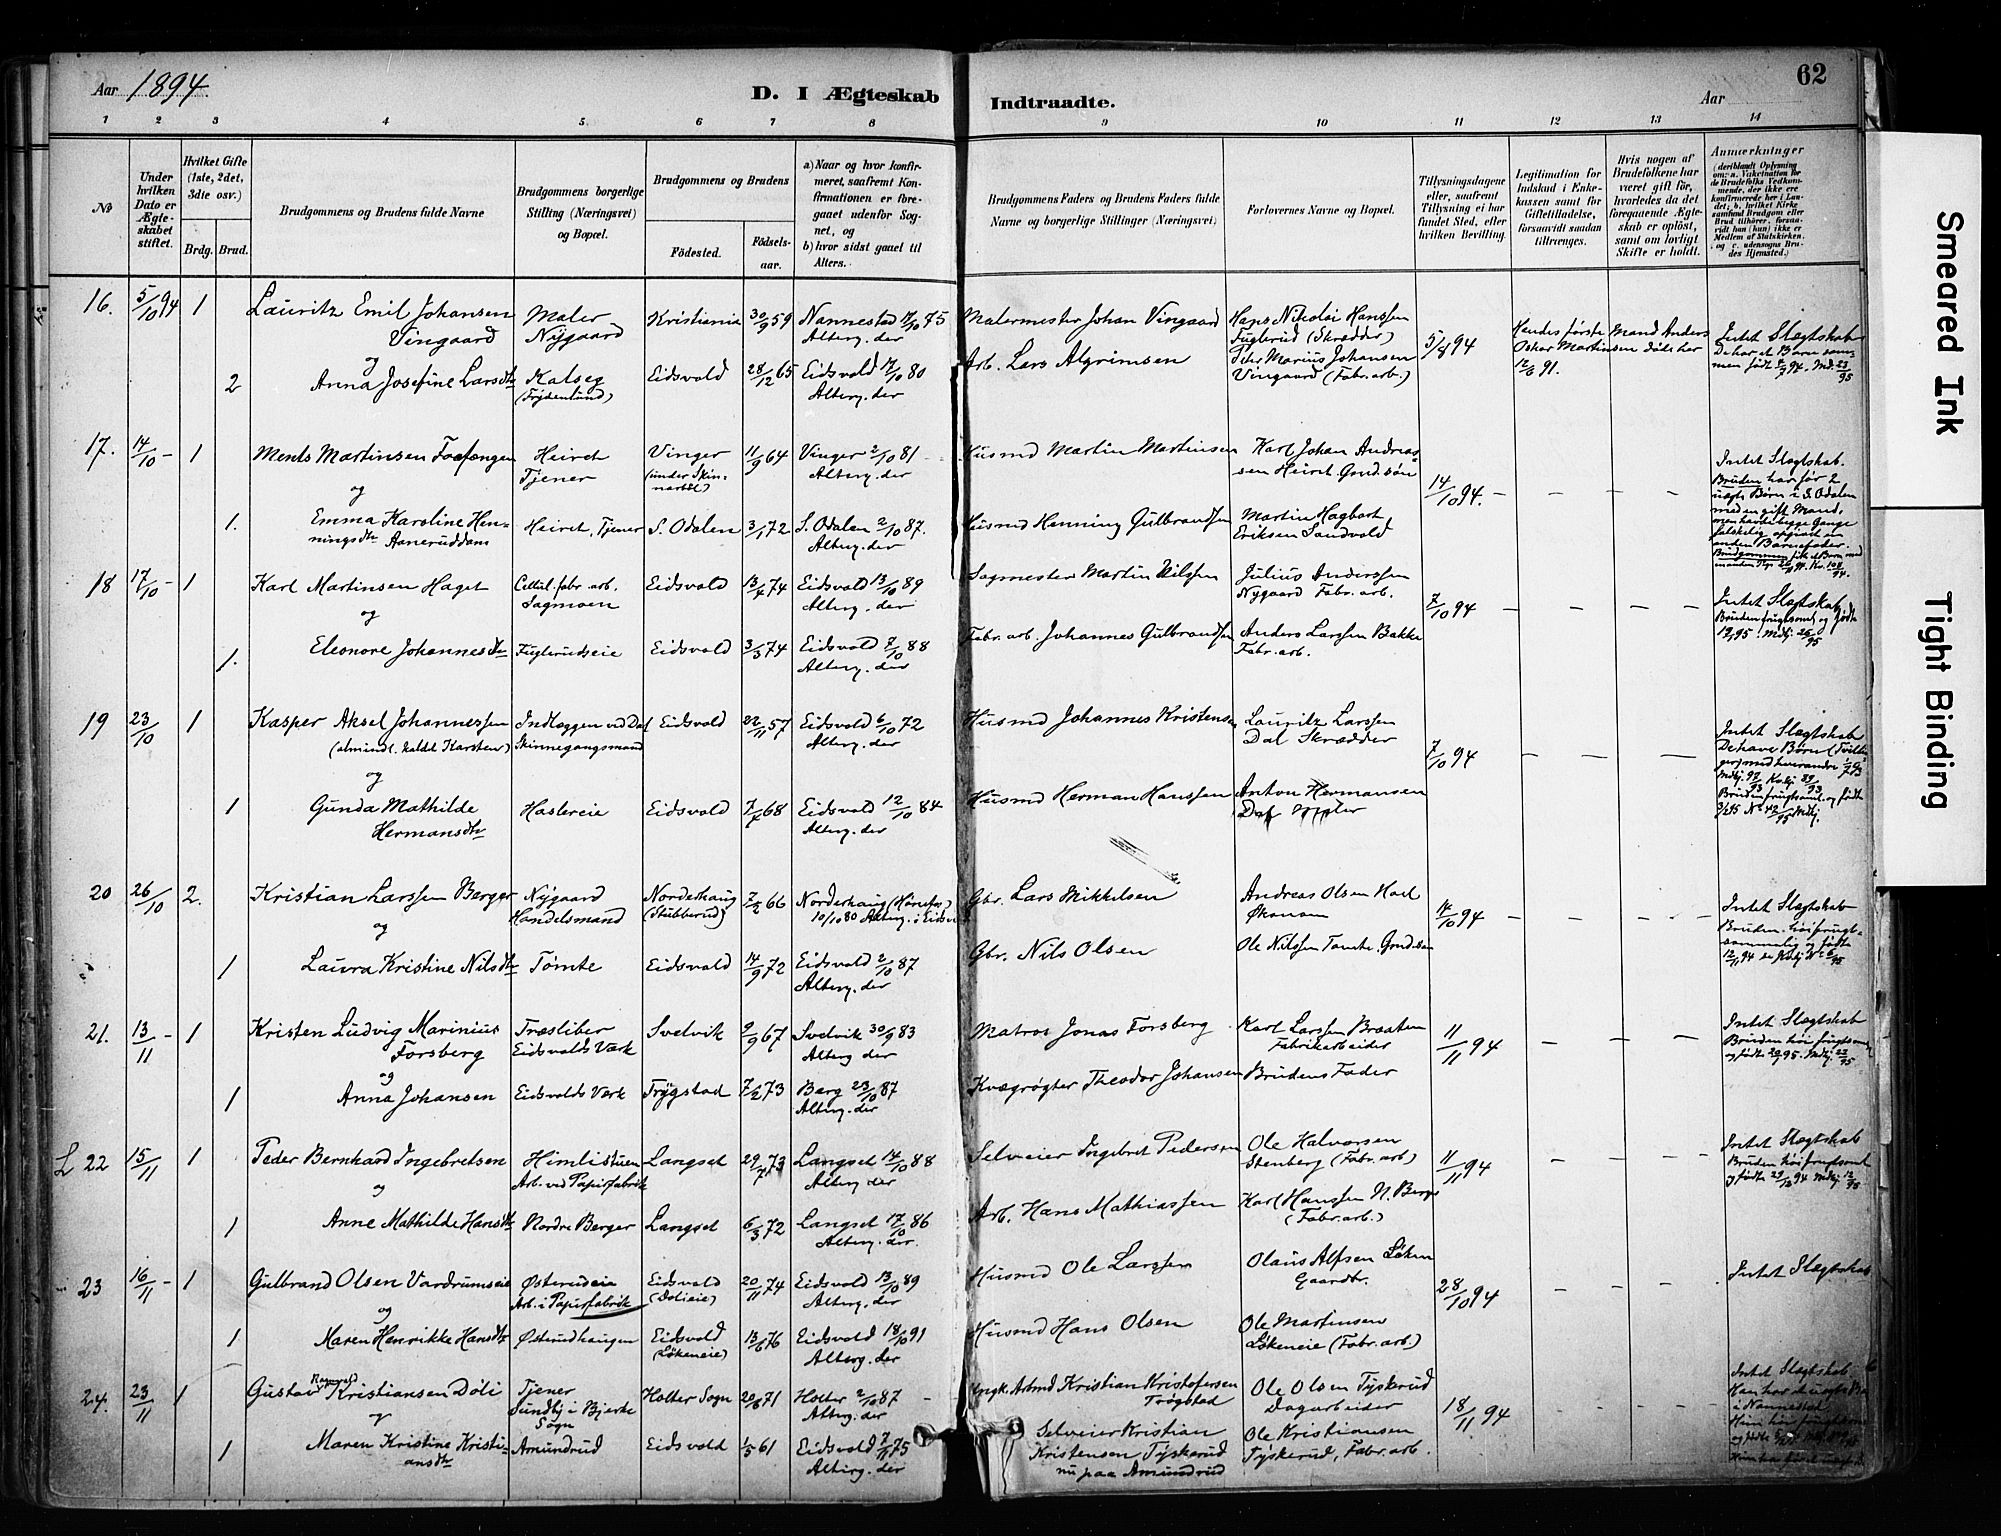 Aar 1894.
D. I Ægteskab Indtraadte.
Aar
62
1 2 3 4 5 6 7 8 9 10 11 12 13 14
No
Under hvilken Dato er Ægteskabet stiftet.
Hvilket Gifte (1ste, 2det, 3die osv.)
Brdg. Brud.
Brudgommens og Brudens fulde Navne
Brudgommens borgerlige Stilling (Næringsvei) og Bopæl.
Brudgommens og Brudens
Födested. Födselsaar.
a) Naar og hvor konfirmeret, saafremt Konfirmationen er foregaaet udenfor Sognet, og
b) hvor sidst gaaet til Alters.
Brudgommens Faders og Brudens Faders fulde Navne og borgerlige Stillinger (Næringsvei)
Forlovernes Navne og Bopæl.
Tillysningsdagene eller, saafremt Tillysning ei har fundet Sted, efter hvilken Bevilling.
Legitimation for Indskud i Enkekassen samt for Giftetilladelse, forsaavidt saadan tiltrænges.
Hvis nogen af Brudefolkene har været gift för, hvorledes da det foregaaende Ægteskab er oplöst, samt om lovligt Skifte er holdt.
Anmærkninger
16. 5/10 94 1 Lauritz Emil Johansen Vingaard
Maler Nygaard
Kristiania 30/9 59 Nannestad 17/10 75
Alterg. der
Malermester Johan Vingaard
Hans Nikolai Hanssen
Fuglerud (Skrædder)
5/8 94
Hendes første Mand Anders
Oskar Martinsen døde her
12/6 91.
Intet Slægtskab
De har et Barn sammen
og
2 Anna Josefine Larsdtr Kalseg
(Frydenlund)
Eidsvold 28/12 65 Eidsvold 17/10 80
Alterg. der
Arb. Lars Algrimsen
Peter Marius Johansen
Vingaard (Fabr. arb.)
17. 14/10 - 1 Ments Martinsen Forfangen
Heiret Tjener
Vinger 11/9 64 Vinger 2/10 81 -
Alterg. der
Husmd Martin Martinsen
Karl Johan Andreassen Heiret Grd. søn
14/10 94. - - -
Intet Slægtskab.
Bruden har før 2
uægte Børn i S. Odalen
med en gift Mand,
og
1. Emma Karoline Henningsdtr Aaneruddam
Heiret, Tjener S. Odalen 3/1 72 S. Odalen 2/10 87.
Alterg. der
Husmd Henning Gulbrandsen
Martin Hagbart
Eriksen Sandvold
18 17/10 - 1 Karl Martinsen Haget
Cellul. fabr. arb.
Sagmoen
Eidsvold 13/4 74 Eidsvold 13/10 89
Alterg. der
Sagmester Martin Nilssen
Julius Anderssen
Nygaard Fabr. arb.
7/10 94 - - -
Intet Slægtskab
og
1. Eleonore Johannesdtr Fuglerudseie Eidsvold 3/3 74 Eidsvold 7/10 88
Alterg. der
Fabr. arb. Johannes Gulbrandsen
Anders Larssen Bakke
Fabr. arb.
19 23/10 1 Kasper Aksel Johannessen
(almindl. kaldt Karsten)
Indlæggen ved Dal
Skinnegangsmand
Eidsvold 22/11 57 Eidsvold 6/10 72
Alterg. der
Husmd Johannes Kristensen
Lauritz Larssen
Dal Skrædder
7/10 94 - - -
Intet Slægtskab
og
1 Gunda Mathilde Hermansdtr
Haslereie Eidsvold 7/7 68 Eidsvold 12/10 84
Alterg. der
Husmd Herman Hanssen
Anton Hermansen
Dal
20 26/10 2. Kristian Larssen Berger
Nygaard
Handelsmand
Norderhaug
(Stubberud)
7/2 66 Norderhaug (Hønefos)
10/10 80 Alterg. i Eidsv
Gbr. Lars Mikkelsen
Andreas Olsen Hoel
Økonom
14/10 94 - - -
Intet Slægtskab
og
1 Laura Kristine Nilsdtr Tømte Eidsvold 14/9 72 Eidsvold 2/10 87
Alterg. der
Gbr. Nils Olsen
Ole Nilssen Tømte Grud.søn
21. 13/11 - 1 Kristen Ludvig Marinius Forsberg
Træsliber
Eidsvolds Værk
Svelvik 9/9 67 Svelvik 30/9 83
Alterg der
Matros Jonas Forsberg
Karl Larssen Braaten
Fabrikarbeider
11/11 94 - - -
Intet Slægtskab
og
1 Anna Johansen Eidsvolds Værk Trygstad 7/2 73 Berg 23/10 87
Alterg. der
Kvægrøgter Theodor Johansen
Brudens Fader
L 22 15/11 1 Peder Bernhard Ingebretsen
Himlistuen
Arb. ved Papirfabrik
Langset 29/7 73 Langset 14/10 88
Alterg der
Selveier Ingebret Pedersen
Ole Halvorsen
Stenberg (Fabr. arb)
11/11 94 - - -
Intet Slægtskab
og
1 Anne Mathilde Hansdtr Nordre Berger Langset 6/3 72 Langset 17/10 86
Alterg. der.
Arb. Hans Mathiassen
Karl Hanssen N. Berger
(Fabr.arb.)
23 16/11 - 1 Gulbrand Olsen Vardrumseie
Østerudeie
Arb. i Papirfabrik
Eidsvold
(Dølieie)
20/11 74 Eidsvold 13/10 89
Alterg. der
Husmd Ole Larssen
Olaus Alfsen Løken
Gaardbr.
28/10 94 - - -
Intet Slægtskab
og
1 Maren Henrikke Hansdtr Østerudhaugen
Eidsvold
(Løkeneie)
13/6 76 Eidsvold 18/10 91
Alterg. der
Husmd Hans Olsen
Ole Martinsen
Løkeneie (Fabr. arb.)
24. 23/11 1 Gustav Ragnvald Kristiansen Døli
Tjener
Sundby i Bjerke Sogn
Holter Sogn 20/6 71 Holter 2/10 87 -
Alterg. der
Ungk. Arbmd Kristian Kristofersen
Trøgstad
Ole Olsen Tyskerud
Dagarbeider
18/11 94 - - -
Intet Slægtskab
og
1 Maren Kristine Kristiansdtr
Amundrud Eidsvold 1/5 61 Eidsvold 7/11 75
Alterg. der
Selveier Kristian
Kristensen Tyskerud
nu paa Amundrud
Ole Kristiansen
Tyskerud, Fabr. arb.
Smeared Ink
Tight Binding